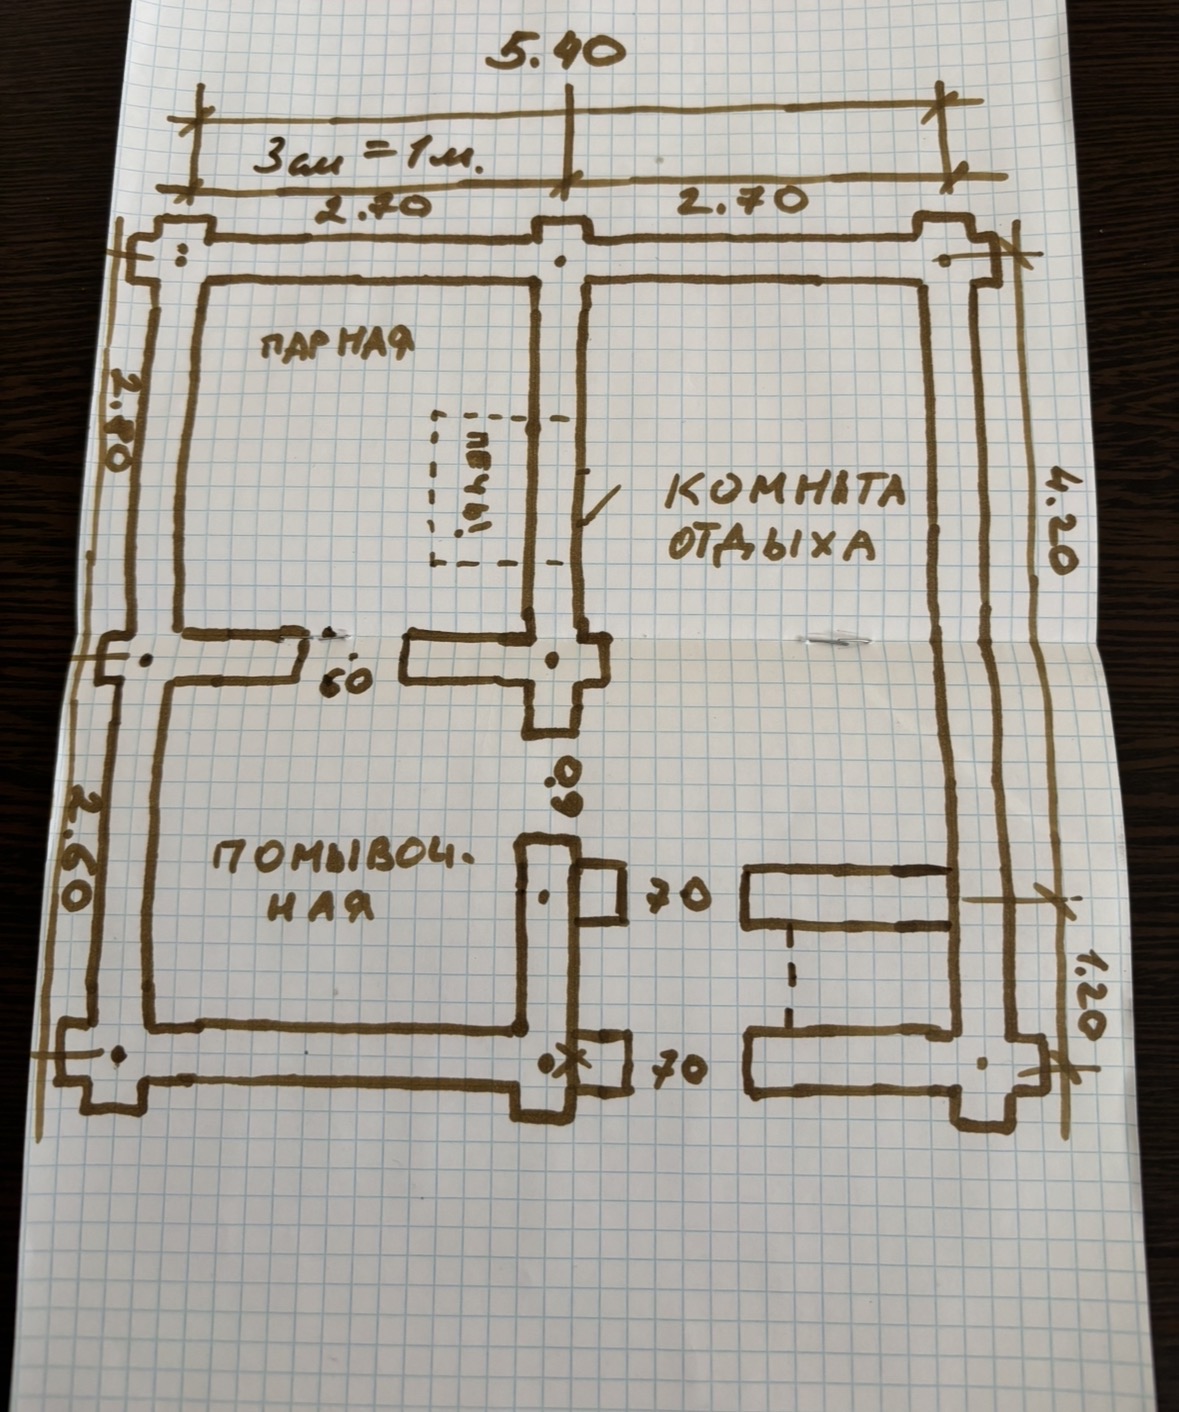 5.40
3см = 1м.
2.70
2.70
ПАРНАЯ
2.80
ПЕЧЬ
КОМНАТА
ОТДЫХА
4.20
60
60
2.60
ПОМЫВОЧ.
НАЯ
70
1.20
70